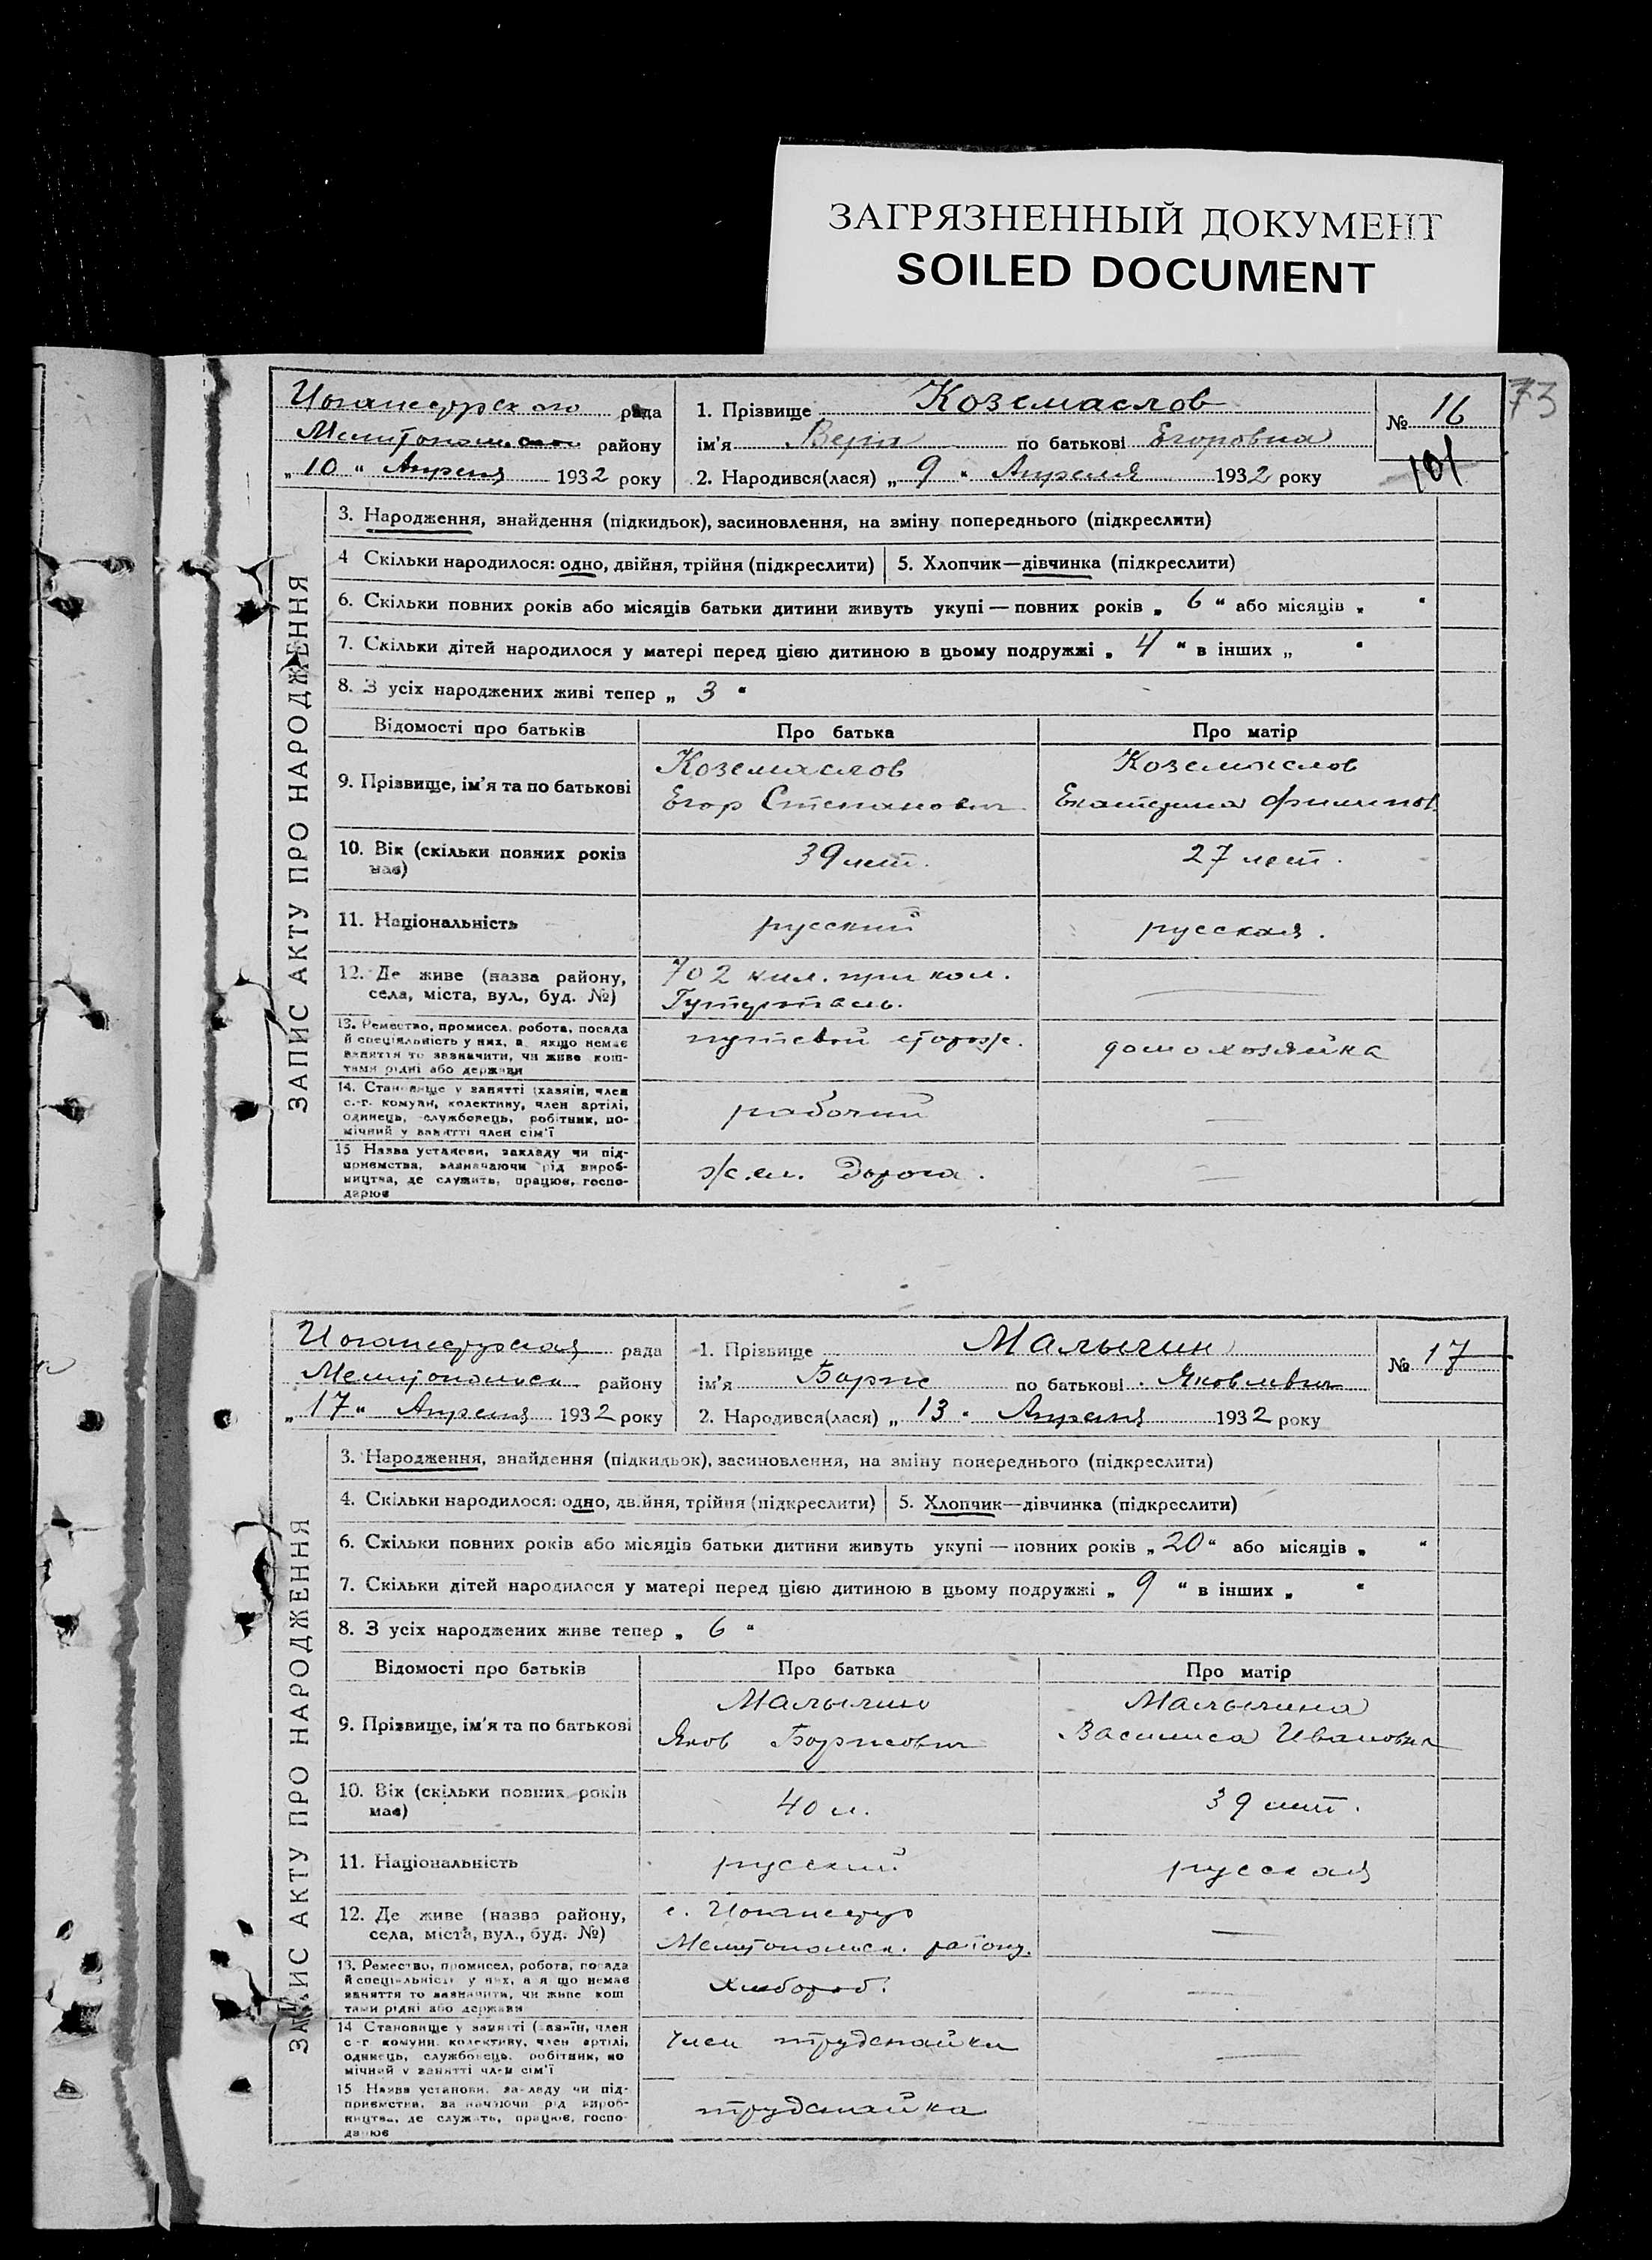 ЗАГРЯЗНЕННЫЙ ДОКУМЕНТ
SOILED DOCUMENT
73
рада
району
„10“ Апреля 1932 року
1. Прізвище Коземаслов
ім'я Вера по батькові Егоровна
2. Народився(лася) „9“ Апреля 1932 року
№ 16
101
ЗАПИС АКТУ ПРО НАРОДЖЕННЯ
3. Народження, знайдення (підкидьок), засиновлення, на зміну попереднього (підкреслити)
4 Скільки народилося: одно, двійня, трійня (підкреслити) 5. Хлопчик—дівчинка (підкреслити)
6. Скільки повних років або місяців батьки дитини живуть укупі — повних років „ 6 “ або місяців „ “
7. Скільки дітей народилося у матері перед цією дитиною в цьому подружжі „ 4 “ в інших „ “
8. З усіх народжених живі тепер „ 3 “
Відомості про батьків Про батька Про матір
9. Прізвище, ім'я та по батькові
Коземаслов
Егор Степанович
Коземаслов
Екатерина
10. Вік (скільки повних років має)
39 лет.
27 лет.
11. Національність
русский
русская.
12. Де живе (назва району,
села, міста, вул., буд. №)
702 кил. при кол.
13. Ремество, промисел, робота, посада
й спеціяльність у них, а якщо немає
заняття то зазначити, чи живе кош-
тами рідні або держави
путевой сторож.
домохозяйка
14. Становище у занятті (хазяїн, член
с.-г. комуни, колективу, член артілі,
одинець, службовець, робітник, по-
мічний у занятті член сім'ї
рабочий
15 Назва установи, закладу чи під-
приємства, зазначаючи рід вироб-
ництва, де служить, працює, госпо-
дарює
ж.ел. Дорога.
рада
Мелитопольск. району
„17“ Апреля 1932 року
1. Прізвище Малыгин
ім'я Борис по батькові Яковлевич
2. Народився(лася) „13“ Апреля 1932 року
№ 17
ЗАПИС АКТУ ПРО НАРОДЖЕННЯ
3. Народження, знайдення (підкидьок), засиновлення, на зміну попереднього (підкреслити)
4. Скільки народилося: одно, двійня, трійня (підкреслити) 5. Хлопчик—дівчинка (підкреслити)
6. Скільки повних років або місяців батьки дитини живуть укупі — повних років „ 20 “ або місяців „ “
7. Скільки дітей народилося у матері перед цією дитиною в цьому подружжі „ 9 “ в інших „ “
8. З усіх народжених живе тепер „ 6 “
Відомості про батьків Про батька Про матір
9. Прізвище, ім'я та по батькові
Малыгин
Яков Борисович
Малыгина
Василиса Ивановна
10. Вік (скільки повних років має)
40 л.
39 лет.
11. Національність
русский
русская
12. Де живе (назва району,
села, міста, вул., буд. №)
с.
Мелитопольск. району.
13. Ремество, промисел, робота, посада
й спеціяльність у них, а якщо немає
заняття то зазначити, чи живе кош
тами рідні або держави
хлебороб.
14 Становище у занятті (хазяїн, член
с-г комуни, колективу, член артілі,
одинець, службовець, робітник, по
мічний у занятті член сім'ї
член
15 Назва установи, закладу чи під-
приємства, зазначаючи рід вироб-
ництва, де служить, працює, госпо
дарює